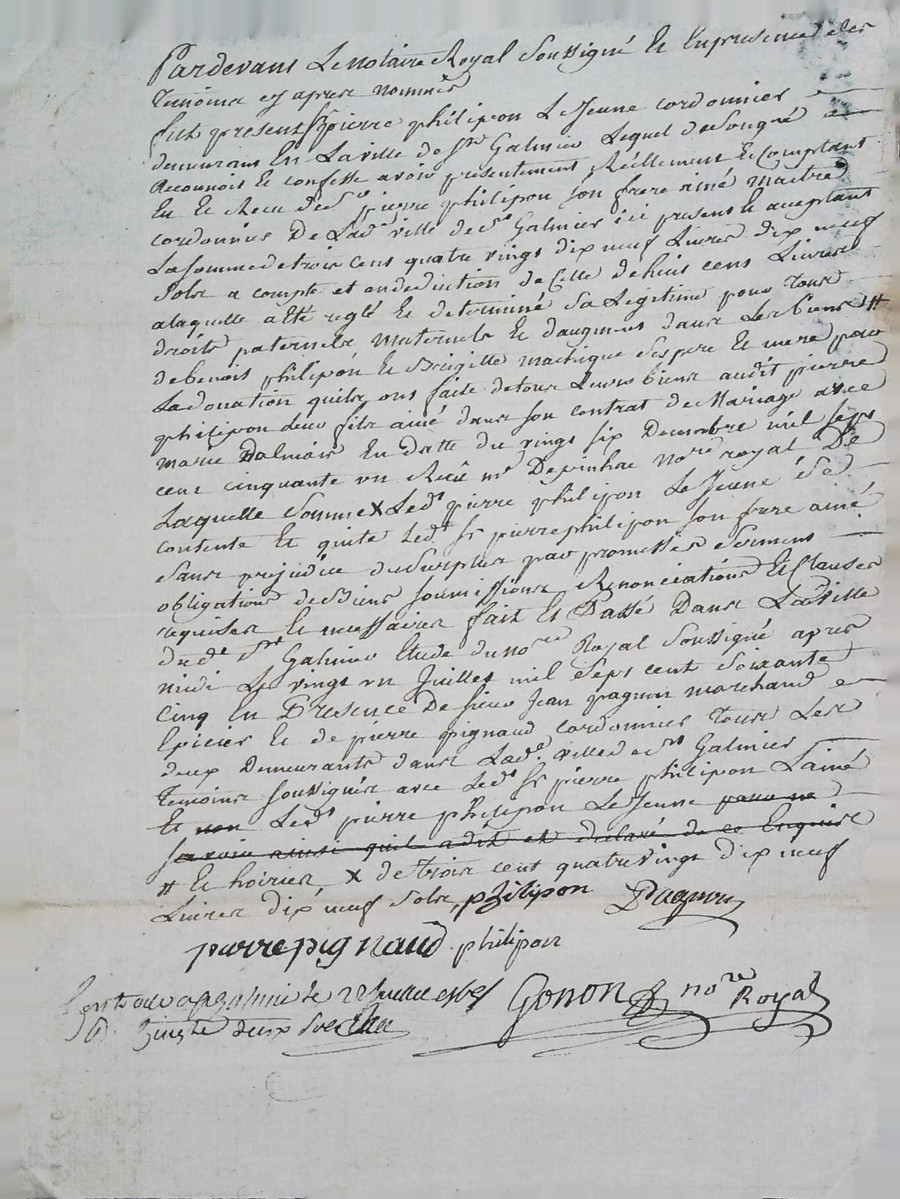 Pardevant Le notaire Royal Soussigné Et En presence des
temoins cy apres nommés
fut present Sr pierre philipon Le Jeune cordonnier
demeurant En La ville de St Galmier Lequel de Son gré a
Reconnois Et confesse avoir presentement Réellement Et Comptant
Eu Et Recu de Sr pierre philipon son frere ainé maitre
cordonnier De Lade ville de St Galmier ici present Et acceptant
La somme de trois cens quatre vingt dix neuf Livres dix neuf
Sols a compte et en deduction de Celle de huit cens Livres
a laquelle a Eté reglé Et determiné Sa Legitime pour Tous
droits paternels maternels Et daugment dans Les biens #
de benoit philipon Et Brigitte Matrique Ses pere Et mere par
La donation quils ont faite de tous Leurs biens audit pierre
philipon Leur fils ainé dans son contrat de Mariage avec
marie Dalmais En datte du vingt six Decembre mil Sept
cent cinquante un Recû Me Depinhac nore royal De
Laquelle Somme X Ledt pierre philipon Le Jeune Se
contente Et quite Ledt Sr pierre philipon son frere ainé
Sans prejudice du Surplus par promesses Serment
obligations de Biens soumissions Renonciations Et Clauses
requises Et necessaires fait Et Passé Dans Lad ville
dudt St Galmier Etude du nore Royal Soussigné apres
midi Le vingt un Juillet mil Sept cent Soixante
Cinq En Presence De Sieur Jean pagnon marchand
Epicier Et de pierre pignaud cordonnier Tous Les
deux Demeurants dans Lade ville de St Galmier
Temoins soussignés avec Ledt Sr pierre philipon L'ainé
Et non Ledt pierre philipon Le Jeune pour ne
scavoir ainsi quil a dit et declaré de ce Enquis
# Et hoiries, X de trois cent quatre vingt dix neuf
Livres dix neuf Sols, philipon Pagnon
pierre pignaud philipon
Gonon nore Royal